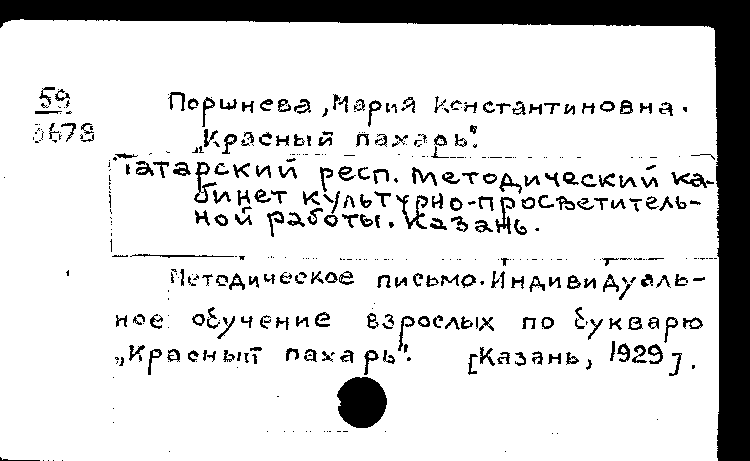 59
3678
Поршнева, Мария Константиновна.
„Красный пахарь".
Татарский респ. методический ка-
бинет культурно-просветитель-
ной работы. Казань.
Методическое письмо. Индивидуаль-
ное обучение взрослых по букварю
„Красный пахарь". [Казань, 1929].